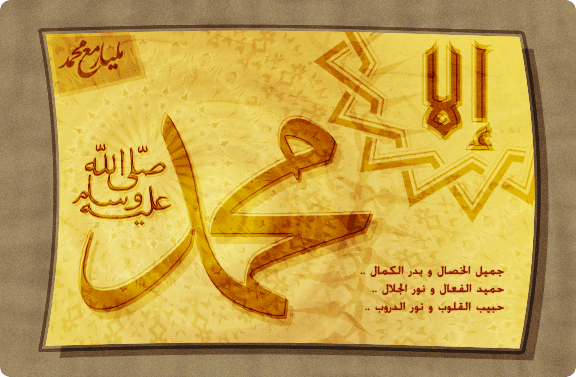 مليار مع محمد
إلا
محمد
صلى الله
عليه وسلم
جميل الخصال و بدر الكمال ..
حميد الفعال و نور الجلال ..
حبيب القلوب و نور الدروب ..